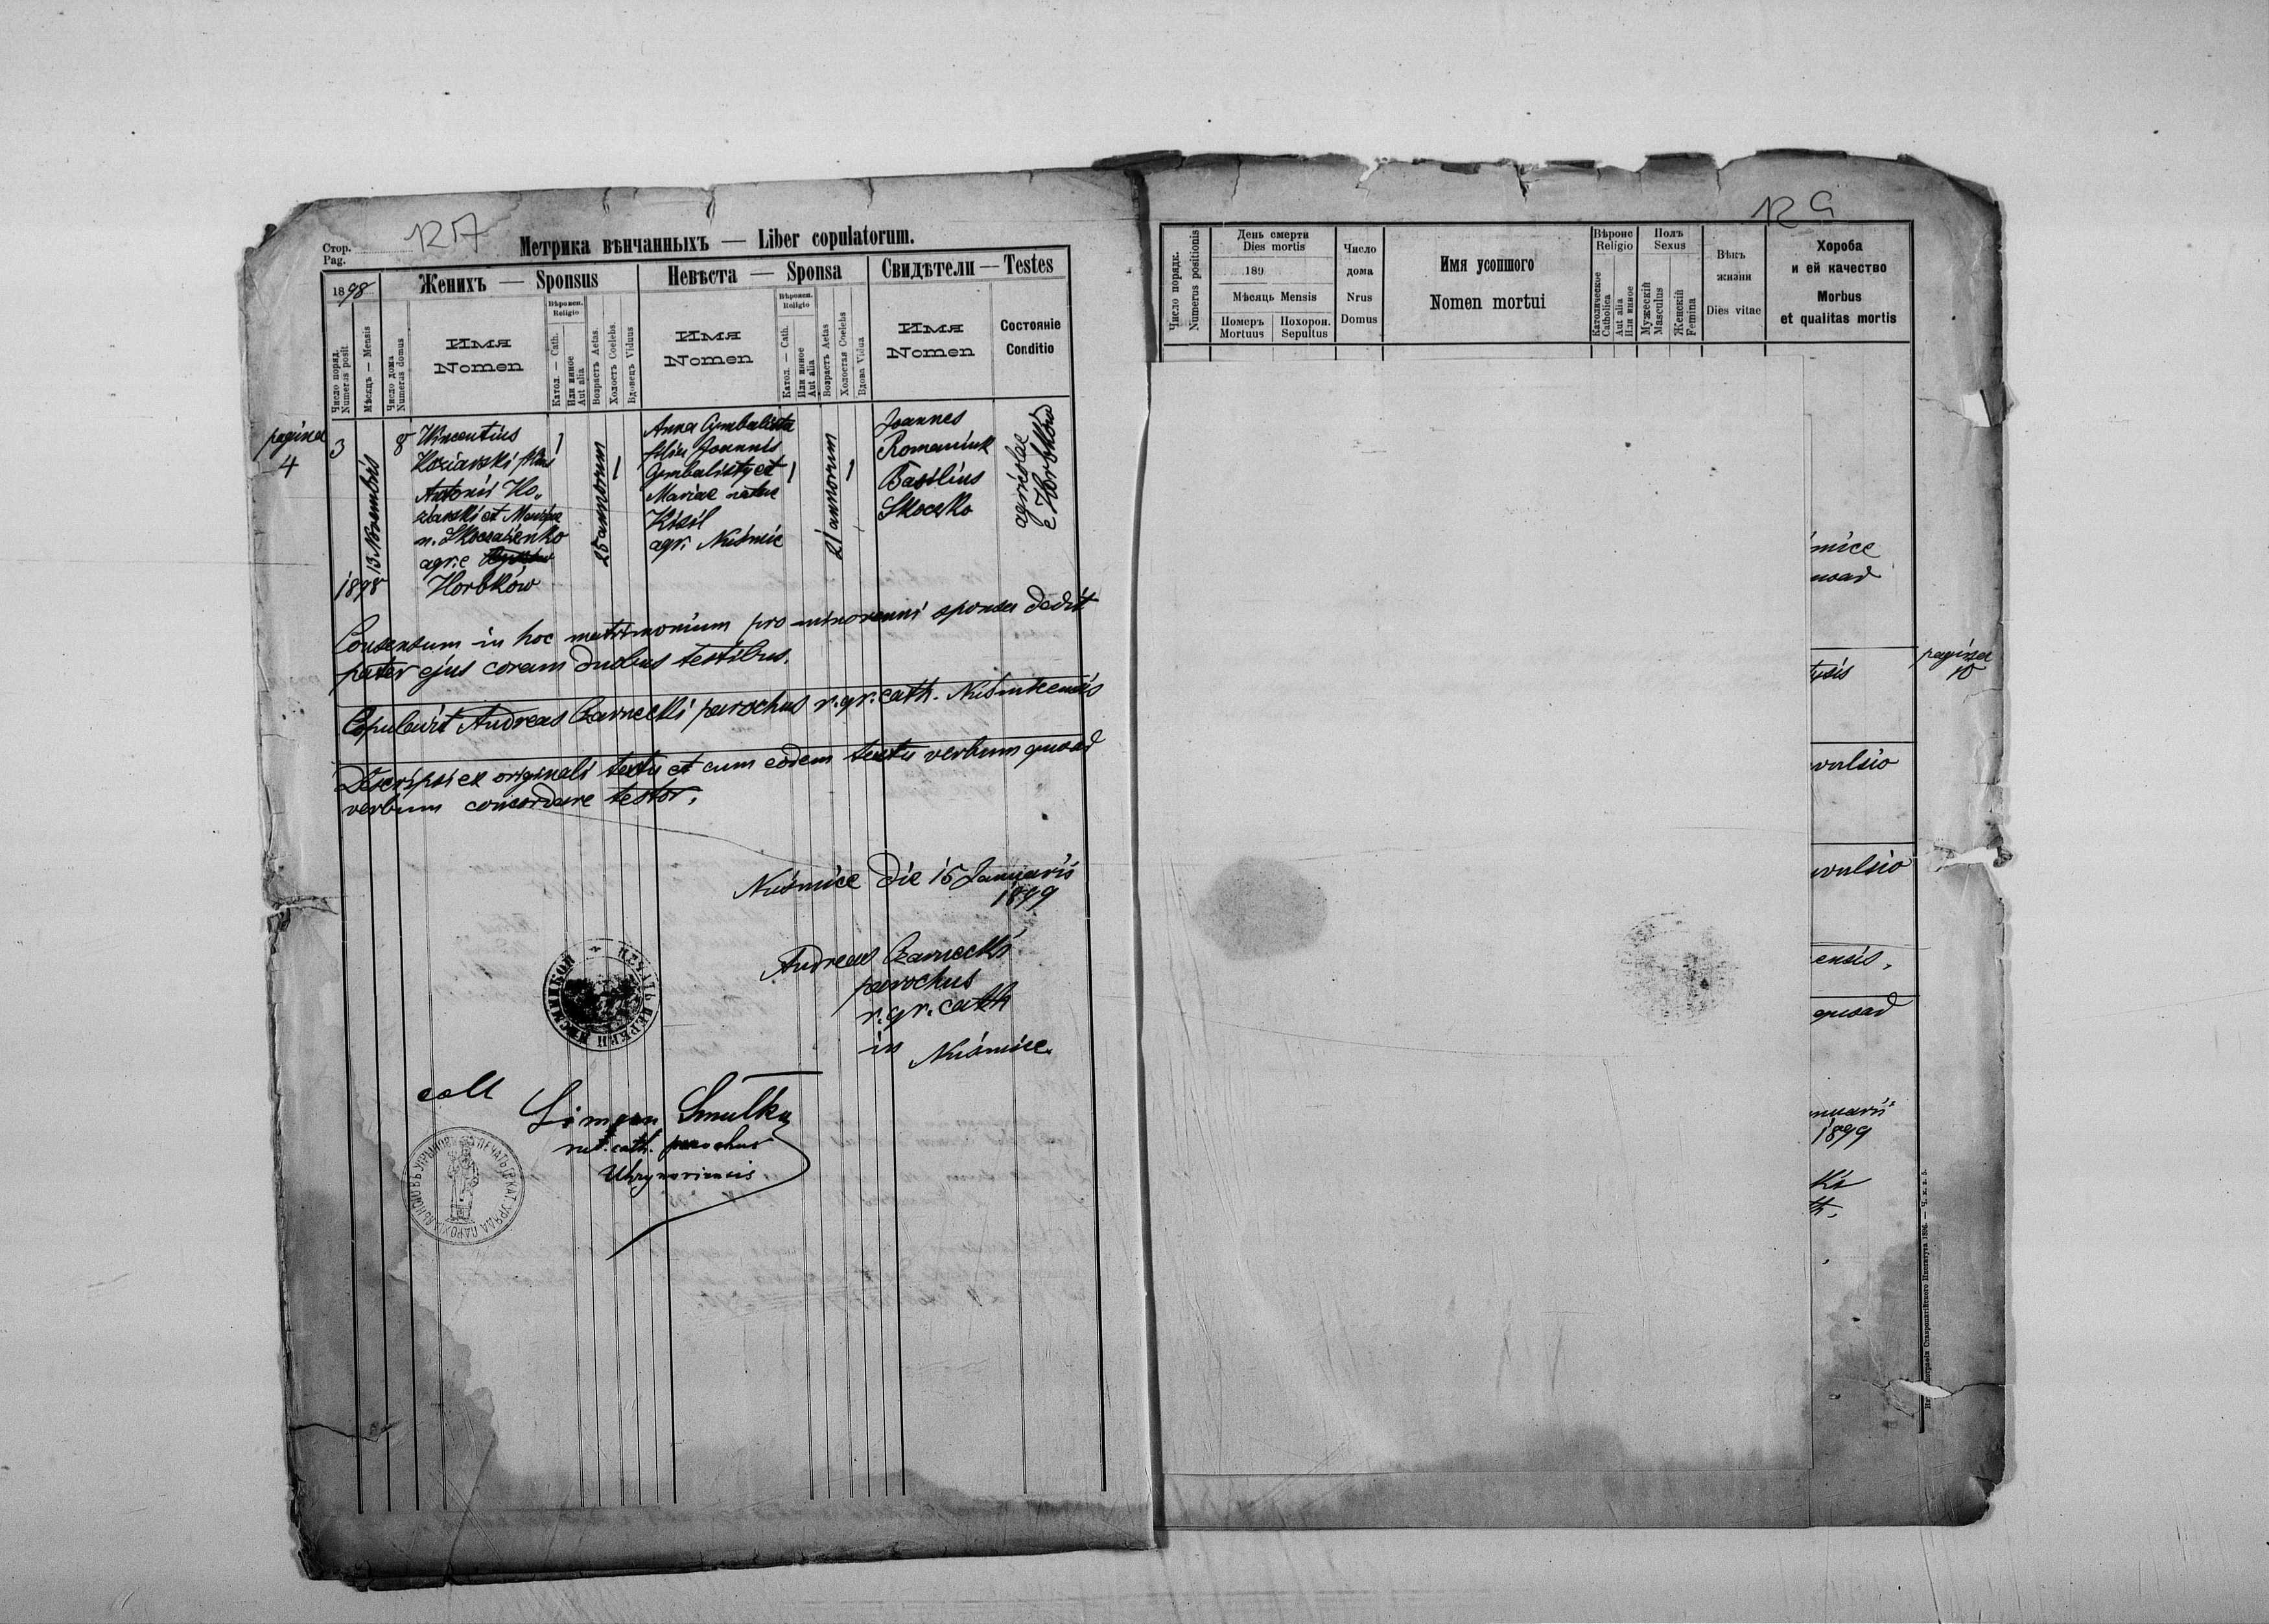 127
Стор.
Pag.
Метрика вѣнчанныхъ — Liber copulatorum.
1898
Женихъ — Sponsus
Невѣста — Sponsa
Свидѣтели — Testes
Число поряд.
Numerus posit
Мѣсяць — Mensis
Число дома
Numerus domus
Имя
Nomen
Вѣроисп.
Religio
Катол. — Cath.
Или инное
Aut alia
Возрастъ Aetas.
Холостъ Coelebs.
Вдовецъ Viduus
Имя
Nomen
Вѣроисп.
Religio
Катол. — Cath.
Или инное
Aut alia
Возрастъ Aetas
Холостая Coelebs
Вдова Vidua
Имя
Nomen
Состояніе
Conditio
pagina
4
3
13 Novembris
1898
8
Wincentius
Koziarski filius
Antonii Ko-
ziarski et Mariae
n.
agr. e
Horbków
1
25 annorum
1
Anna Cymbalista
filia Joannis
Cymbalisty et
Mariae natae
Kisil
agr. Nuśmic
1
21 annorum
1
Joannes
Romaniuk
Basilius
Skoczko
agricolae
e Horbków
Consensum in hoc matrimonium pro minorenni sponsa dedit
pater ejus coram duobus testibus.
Copulavit Andreas Czarnecki parochus r. gr. cath. Nuśmicensis
Descripsi ex originali textu et cum eodem textu verbum quoad
verbum concordare testor.
Nuśmice die 15 Januarii
1899
Andreas Czarnecki
parochus
r. gr. cath
in Nuśmice.
coll
Simeon Smulka
rut. cath. parochus
Uhrynoviensis
129
Число порядк.
Numerus positionis
День смерти
Dies mortis
189
Мѣсяць Mensis
Померъ
Mortuus
Похорон.
Sepultus
Число
дома
Nrus
Domus
Имя усопшого
Nomen mortui
Вѣроис
Religio
Католическое
Catholica
Aut alia
Или инное
Полъ
Sexus
Мужескій
Masculus
Женскій
Femina
Вѣкъ
жизни
Dies vitae
Хороба
и ей качество
Morbus
et qualitas mortis
mice
uoad
pagina
10
vulsio
vulsio
ensis.
quoad
nuarii
1899
ki
th.